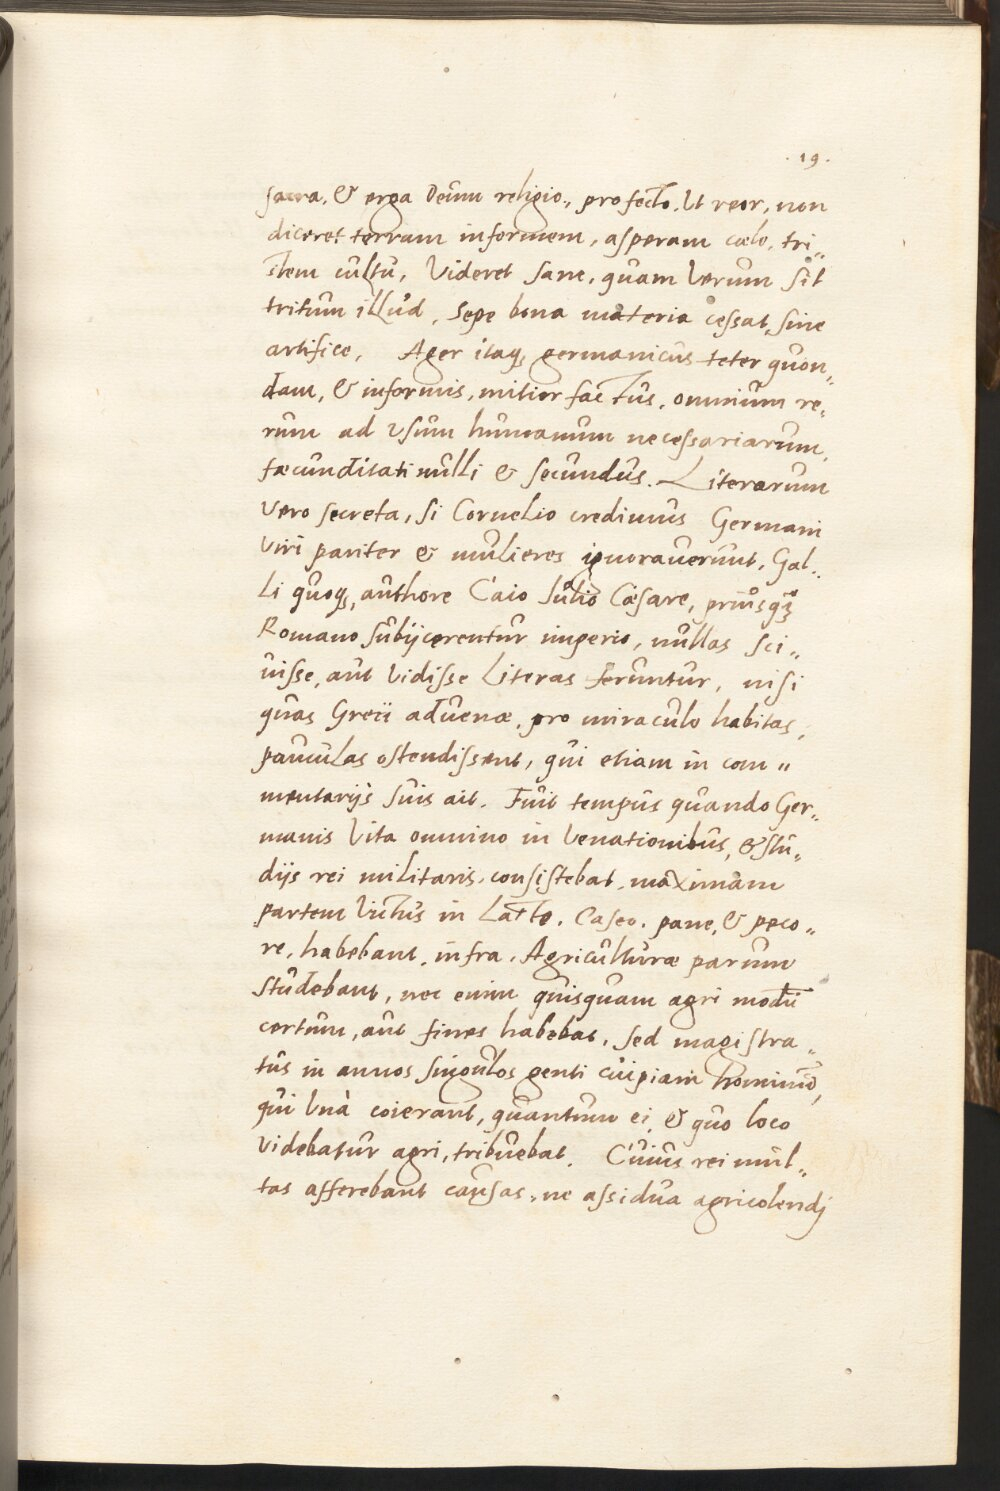 . 19 .
sacra, & erga Deum religio,, profecto, Ut reor, non
diceret terram informem, asperam cælo, tri,,
stem cultu, Videret sane, quam Verum sit
tritum illud, sepe bona materia cessat, sine
artifice, Ager itaq, germanicus teter quon,,
dam, & informis, mitior factus, omnium re,
rum ad usum humanum necessariarum,
fæcunditati nulli & secundus. Literarum
vero secreta, si Cornelio credimus Germani
viri pariter & mulieres ignoraverunt, Gal,,
li quoq, authore Caio Iulio Cæsare, priusq̃
Romano subijcerentur imperio, nullas sci,,
uisse, aut Vidisse Literas feruntur, nisi
quas Greci aduenæ, pro miraculo habitas,
pauculas ostendissent, qui etiam in com,,
mentarijs suis ait. Fuit tempus quando Ger,,
manis Vita omnino in Venationibus, & stu,,
dijs rei militaris, consistebat, maximam
partem Victus in Lacte, Caseo, pane, & peco,,
re, habebant, infra, Agriculturæ parum
studebant, nec enim quisquam agri modū
certum, aut fines habebat, sed magistra,,
tus in annos singulos genti cuipiam hominū,
qui Unà coierant, quantum ei, & quo loco
videbatur agri, tribuebat. Cuius rei mul,,
tas afferebant causas, ne assidua agricolendj